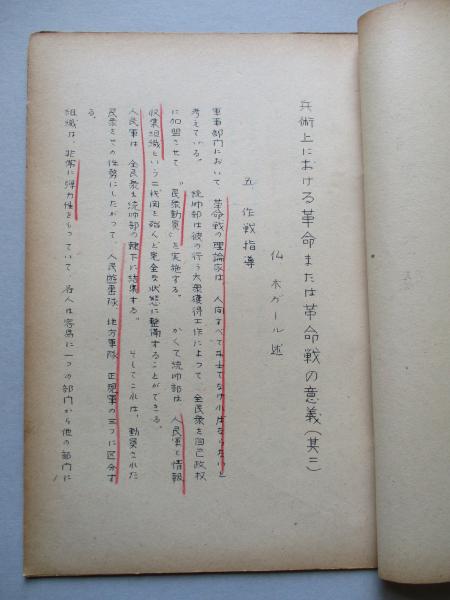 兵術上における革命または革命戦の意義(其三)
仏 ホガール述
五 作戦指導
軍事部内において 革命戦の理論家は、人間すべて斗士でなければならないと
考えている。 統帥部は彼の行う大衆獲得工作によって 全民衆を自己政权
に加盟させて "民衆動員"を実施する。 かくて統帥部は、人民軍と情報
収集組織という二代図を殆んど完全な状態に整備することができる。
人民軍は 全民衆を統帥部の麾下に結集する。 そしてこれは、動員された
民衆をその性勢にしたがって 人民遊撃隊、地方軍隊、正規軍の三つに区分す
る。
組織は、非常に弾力性をもっていて、各人は容易に一つの部内から他の部内に